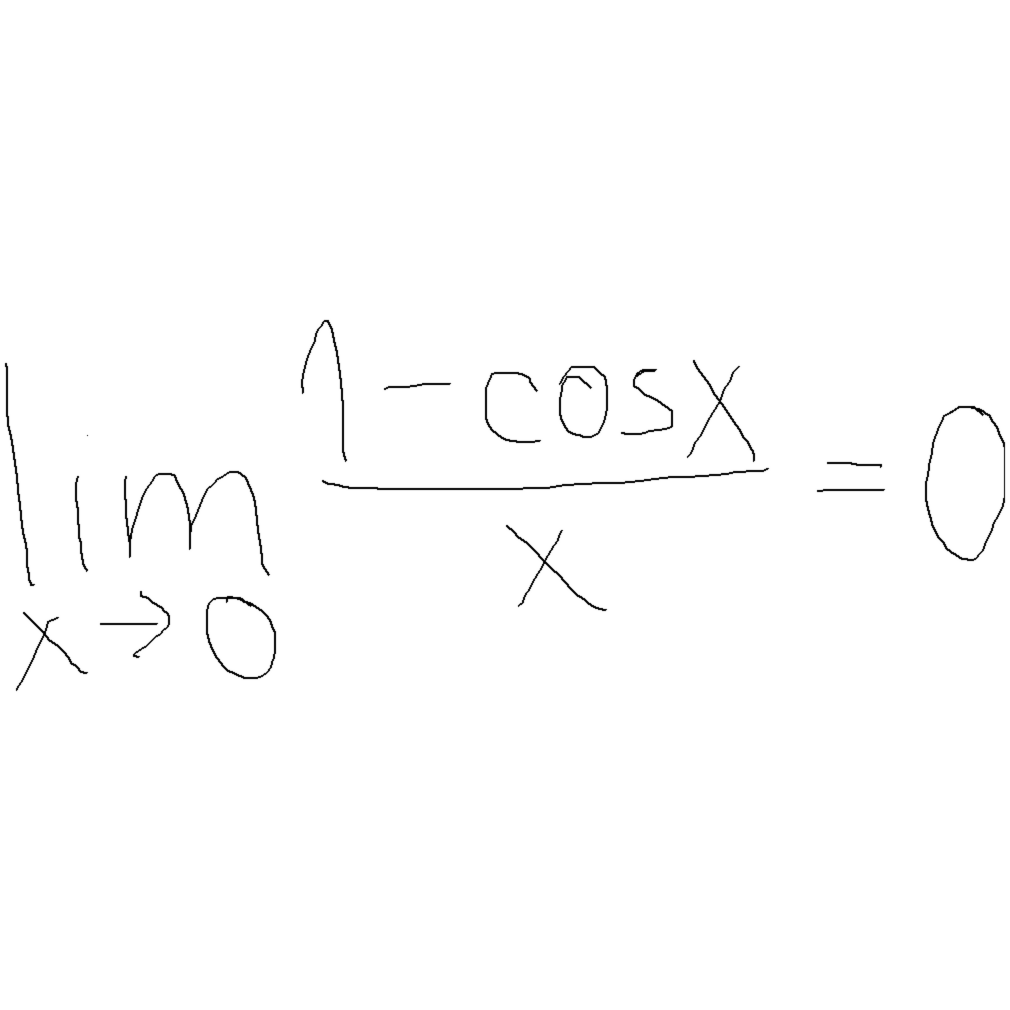 lim_{x→0} \frac{1-cosx}{x} = 0